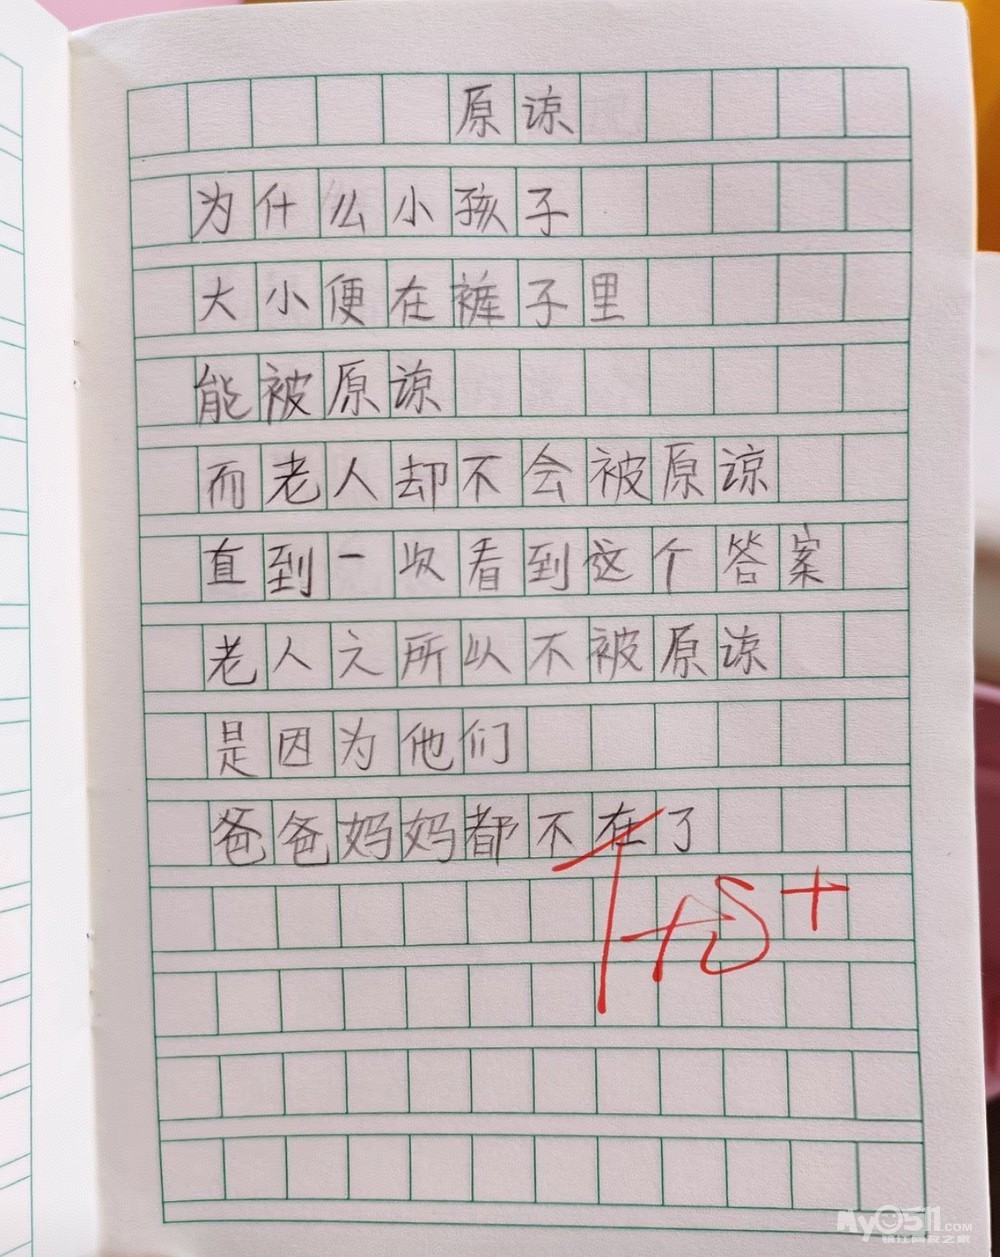 原谅
为什么小孩子
大小便在裤子里
能被原谅
而老人却不会被原谅
直到一次看到这个答案
老人之所以不被原谅
是因为他们
爸爸妈妈都不在了
优+
My0511.COM
镇江网友之家